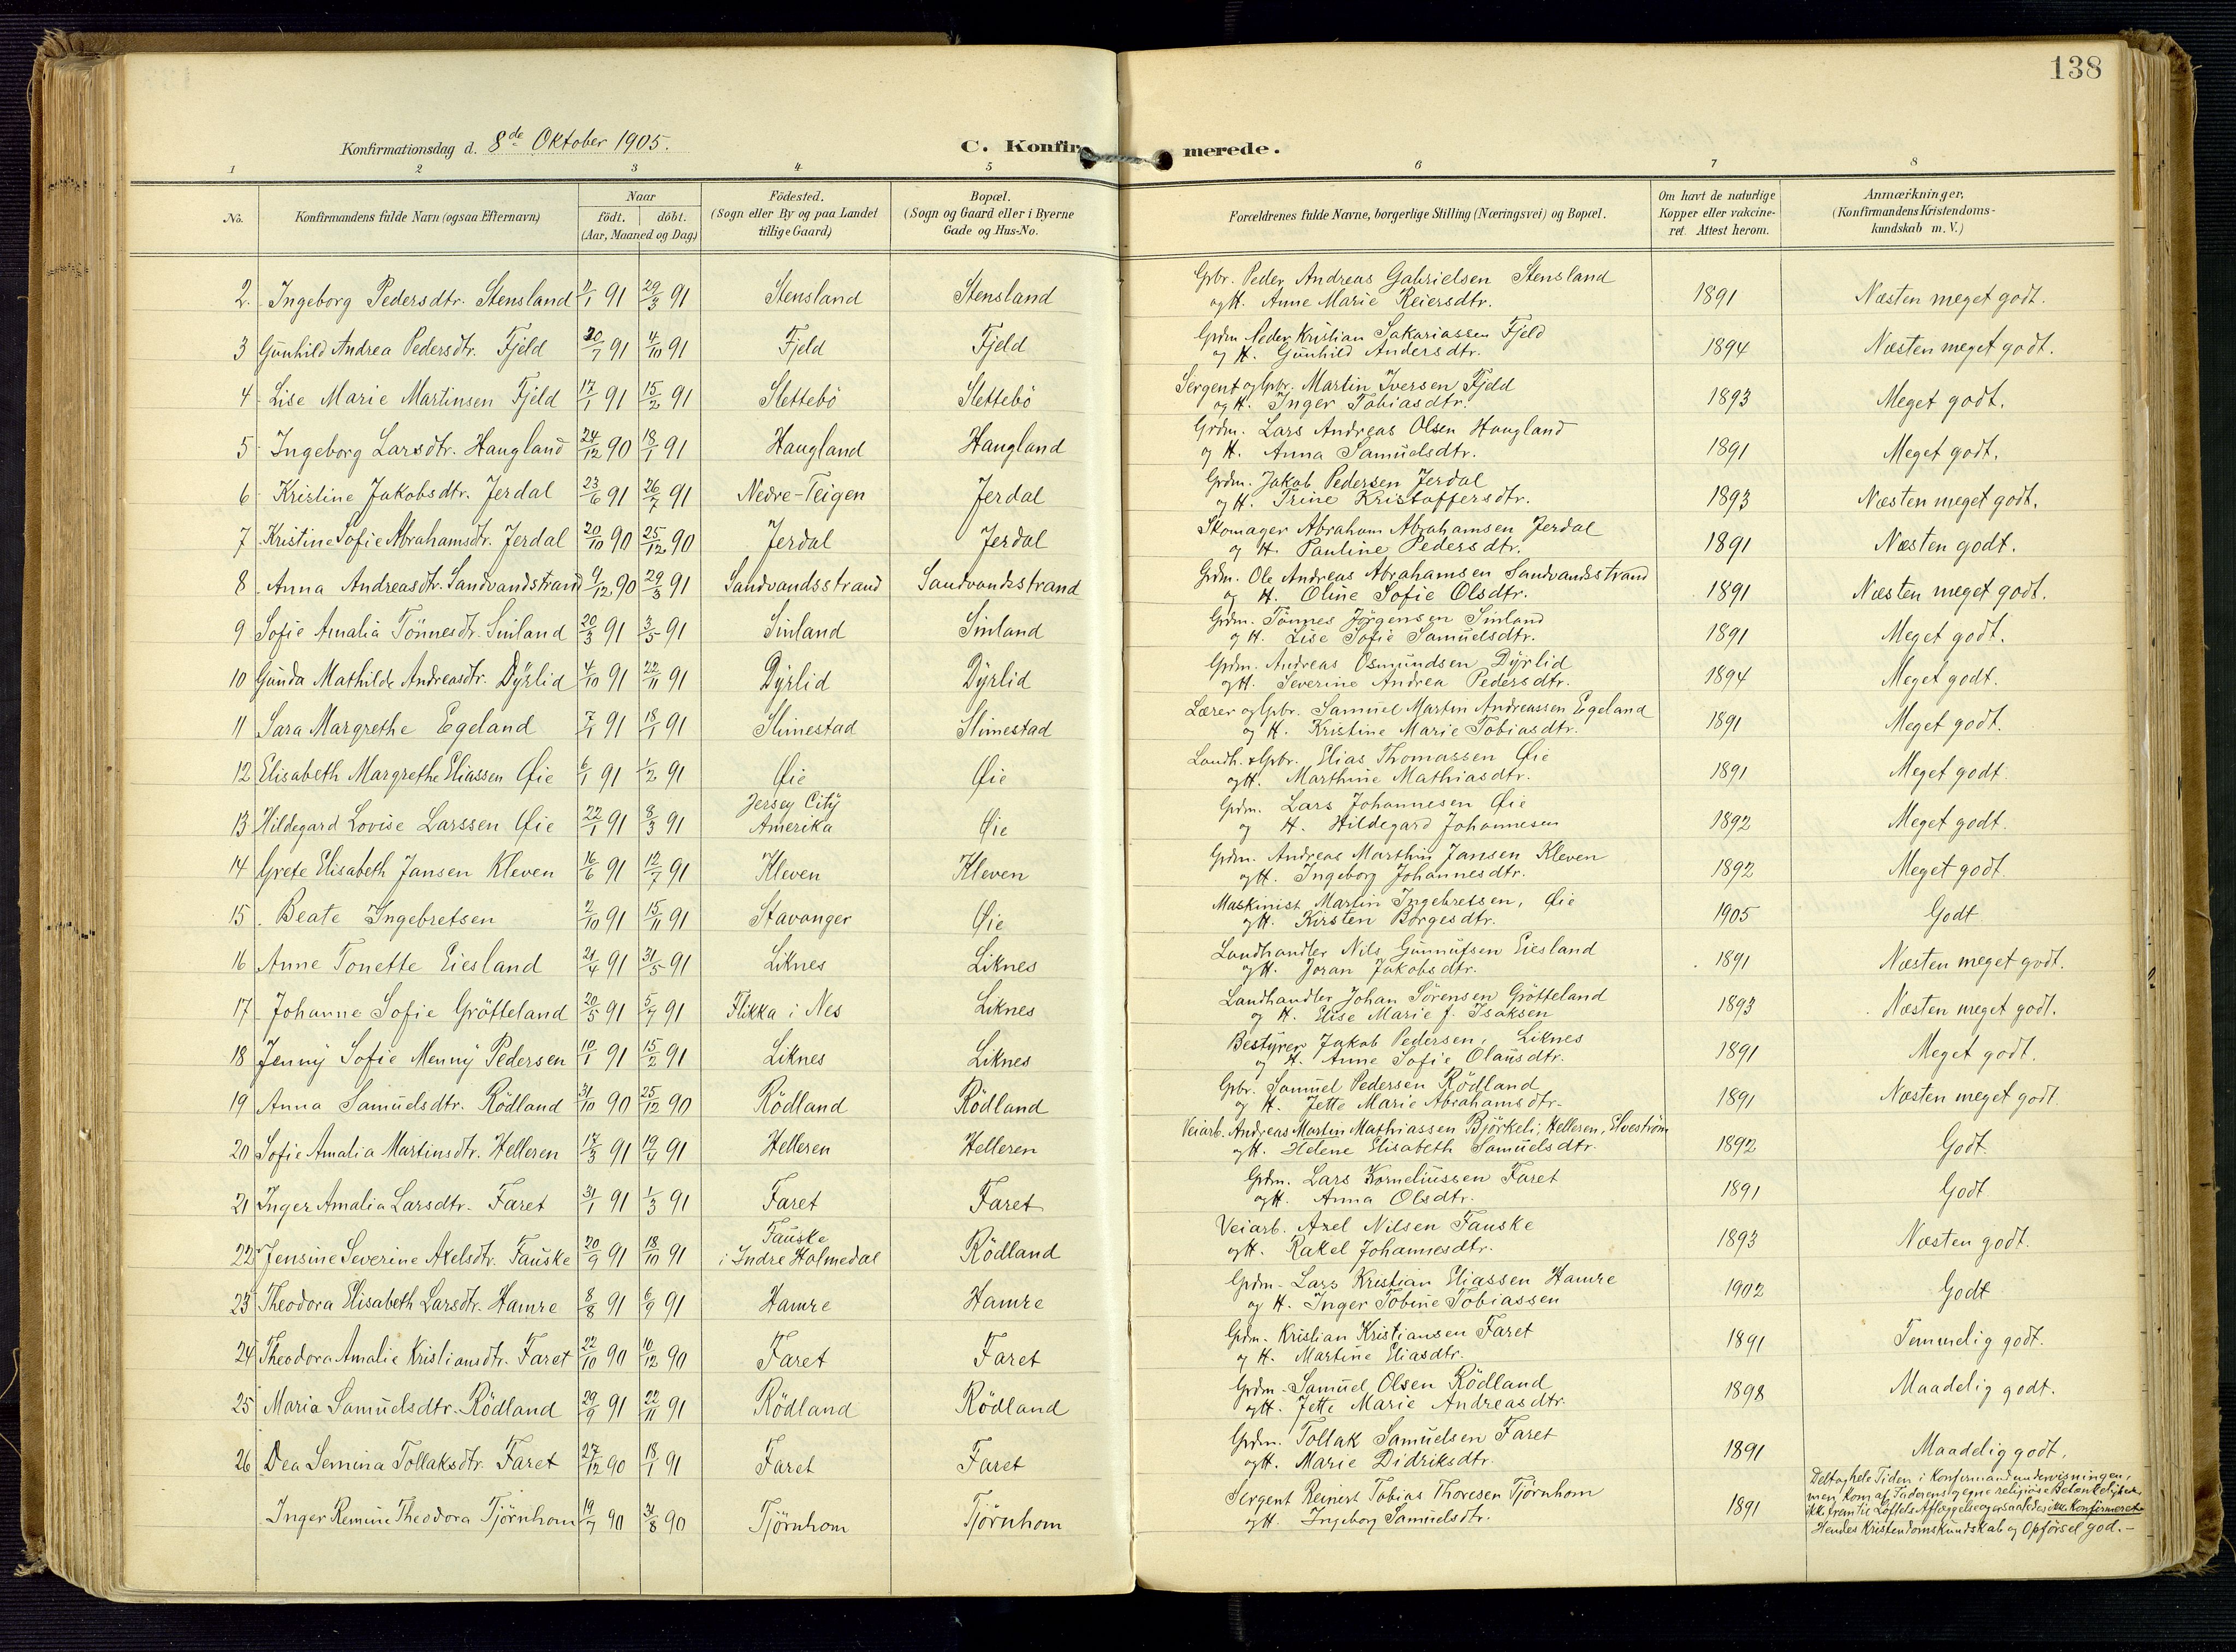 138
Konfirmationsdag d. 8de Oktober 1905.
C. Konfirmerede.
1 2 3 4 5 6 7 8
No.
Konfirmandens fulde Navn (ogsaa Efternavn)
Naar
födt. döbt.
(Aar, Maaned og Dag)
Födested.
(Sogn eller By og paa Landet
tillige Gaard)
Bopæl.
(Sogn og Gaard eller i Byerne
Gade og Hus-No.
Forældrenes fulde Navne, borgerlige Stilling (Næringsvei) og Bopæl.
Om havt de naturlige
Kopper eller vakcine-
ret. Attest herom.
Anmærkninger.
(Konfirmandens Kristendoms-
kundskab m. V.)
Gbr. Peder Andreas Gabrielsen Stensland
2. Ingeborg Pedersdtr. Stensland 91 29/3 91 Stensland Stensland og H. Anne Marie Reiersdtr. 1891 Næsten meget godt.
Grdm. Peder Kristian Sakariassen Fjeld
3 Gunhild Andrea Pedersdtr. Fjeld 20/7 91 4/10 91 Fjeld Fjeld og H. Gunhild Andersdtr. 1894 Næsten meget godt.
Sergent og Gbr. Martin Iversen Fjeld
4 Lise Marie Martinsen Fjeld 17/1 91 15/2 91 Slettebö Slettebö og H. Inger Tobiasdtr. 1893 Meget godt.
Grdm. Lars Andreas Olsen Haugland
5 Ingeborg Larsdtr. Haugland 24/12 90 18/1 91 Haugland Haugland og H. Anna Samuelsdtr. 1891 Meget godt.
Grdm. Jakob Pedersen Jerdal
6 Kristine Jakobsdtr. Jerdal 23/6 91 26/7 91 Nedre-Teigen Jerdal og H. Trine Kristoffersdtr. 1893 Næsten meget godt.
Skomager Abraham Abrahamsen Jerdal
7 Kristine Sofie Abrahamsdtr. Jerdal 20/10 90 25/12 90 Jerdal Jerdal og H. Pauline Pedersdtr. 1891 Næsten godt.
Grdm. Ole Andreas Abrahamsen Sandvandsstrand
8 Anna Andreasdtr. Sandvandstrand 9/12 90 29/3 91 Sandvandsstrand Sandvandsstrand og H. Oline Sofie Olsdtr. 1891 Næsten meget godt.
Grdm. Tönnes Jörgensen Sinland
9 Sofie Amalia Tönnesdtr. Sinland 20/3 91 3/5 91 Sinland Sinland og H. Lise Sofie Samuelsdtr. 1891 Meget godt.
Grdm. Andreas Osmundsen Dyrlid
10 Gunda Mathilde Andreasdtr. Dyrlid 4/10 91 22/11 91 Dyrlid Dyrlid og H. Severine Andrea Pedersdtr. 1894 Meget godt.
Lærer og Gbr. Samuel Martin Andreassen Egeland
11 Sara Margrethe Egeland 7/1 91 18/1 91 Slimestad Slimestad og H. Kristine Marie Tobiasdtr. 1891 Meget godt.
Landh. & Gbr. Elias Thomassen Øie
12 Elisabeth Margrethe Eliassen Øie 6/1 91 1/2 91 Øie Øie og H. Marthine Mathiasdtr. 1891 Meget godt.
Jersey City Grdm. Lars Johannesen Øie
13 Hildegard Lovise Larssen Øie 22/1 91 8/3 91 Amerika Øie og H. Hildegard Johannesen 1892 Meget godt.
Grdm. Andreas Marthin Jansen Kleven
14 Grete Elisabeth Jansen Kleven 16/6 91 12/7 91 Kleven Kleven og H. Ingeborg Johannesdtr. 1892 Meget godt.
Maskinist Martin Ingebretsen, Øie
15. Beate Ingebretsen 2/10 91 15/11 91 Stavanger Øie og H. Kirsten Börgesdtr. 1905 Godt
Landhandler Nils Gunnufsen Eiesland
16 Anne Tonette Eiesland 21/4 91 31/5 91 Liknes Liknes og H. Joran Jakobsdtr. 1891 Næsten meget godt.
Landhandler Johan Sörensen Grötteland
17 Johanne Sofie Grötteland 20/5 91 5/7 91 Flikka i Nes Liknes og H. Elise Marie f. Isaksen 1893 Næsten meget godt.
Bestyrer Jakob Pedersen, Liknes
18 Jenny Sofie Menny Pedersen 10/1 91 15/2 91 Liknes Liknes og H. Anne Sofie Olausdtr. 1891 Meget godt.
Gbr. Samuel Pedersen Rödland
19 Anna Samuelsdtr. Rödland 31/10 90 25/12 90 Rödland Rödland og H. Jette Marie Abrahamsdtr. 1891 Næsten meget godt
Veiarb. Andreas Martin Mathiassen Björkeli, Helleren, Elveström
20 Sofie Amalia Martinsdtr. Helleren 17/3 91 19/4 91 Helleren Helleren og H. Helene Elisabeth Samuelsdtr. 1892 Godt.
Grdm. Lars Korneliussen Faret
21 Inger Amalia Larsdtr. Faret 31/1 91 1/3 91 Faret Faret og H. Anna Olsdtr. 1891 Godt
Fauske Veiarb. Axel Nilsen Fauske
22 Jensine Severine Axelsdtr. Fauske 20/9 91 18/10 91 i Indre Holmedal Rödland og H. Rakel Johannesdtr. 1893 Næsten godt.
Grdm. Lars Kristian Eliassen Hamre
23 Theodora Elisabeth Larsdtr. Hamre 8/8 91 6/9 91 Hamre Hamre og H. Inger Tobine Tobiassen 1902 Godt
Grdm. Kristian Kristiansen Faret
24 Theodora Amalie Kristiansdtr. Faret 22/10 90 10/12 90 Faret Faret og H. Martine Eliasdtr. 1891 Temmelig godt.
Grdm. Samuel Olsen Rödland
25 Maria Samuelsdtr. Rödland 29/9 91 22/11 91 Rödland Rödland og H. Jette Marie Andreasdtr. 1898 Maadelig godt.
Grdm. Tollak Samuelsen Faret
26 Dea Semina Tollaksdtr. Faret 27/12 90 18/1 91 Faret Faret og H. Marie Didriksdtr. 1891 Maadelig godt.
Sergent Reinert Tobias Thoresen Tjörnhom
Inger Remine Theodora Tjörnhom 19/7 90 31/8 90 Tjörnhom Tjörnhom og H. Ingeborg Samuelsdtr. 1891
Deltog hele Tiden i Konfirmandundervisningen,
men kom af Faderens egne religiöse Betænkelighed
ikke frem til Löftets Aflæggelse og er saaledes ikke Konfirmeret.
Hendes Kristendomskundskab og Opförsel god. –